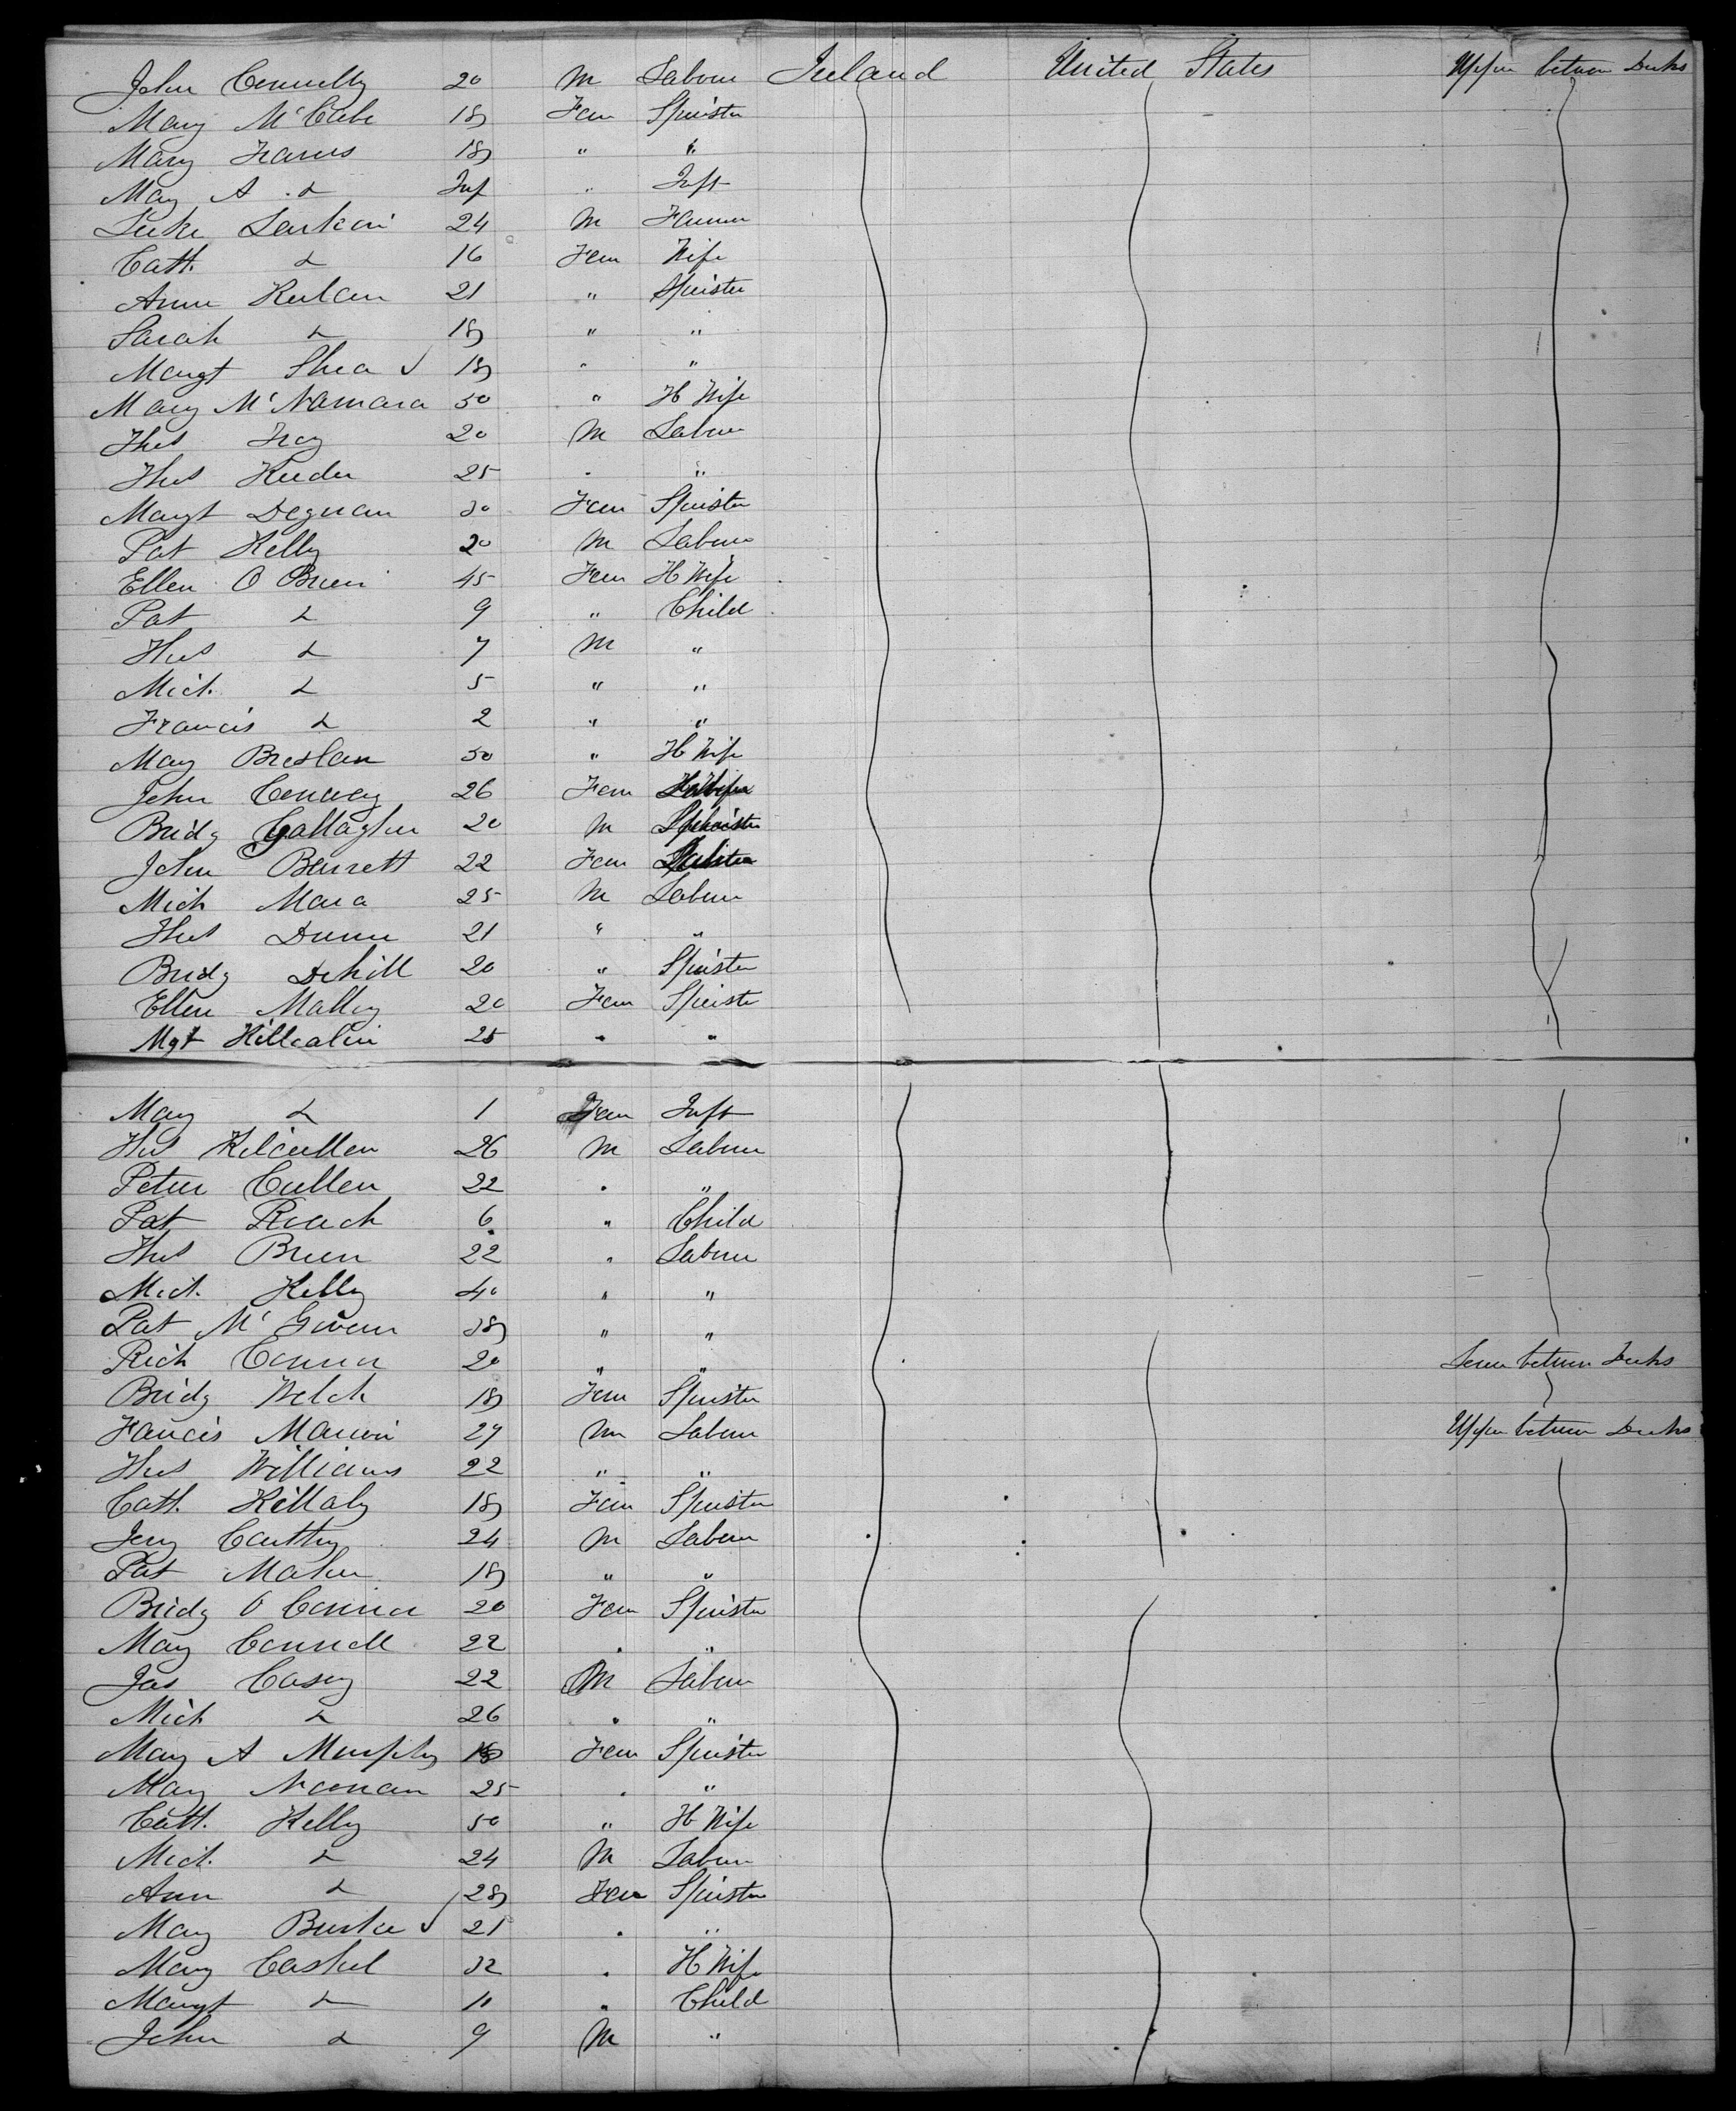 John Connelly 20 M Labour Ireland United States Upper between Decks
Mary McCabe 18 Fem Spinster
Mary 18 " "
Mary A do Inf " Inft
Luke Larkin 24 M Farmer
Cath. do 16 Fem Wife
Anne 21 " Spinster
Sarah do 18 " "
Margt Shea ✓ 18 " "
Mary McNamara 50 " H Wife
Thos 20 M Labour
Thos 25 " "
Margt Degnan 30 Fem Spinster
Pat Kelly 20 M Labour
Ellen O Brien 45 Fem H Wife
Pat do 9 " Child
Thos do 7 M "
Mich. do 5 " "
Francis do 2 " "
Mary Breslan 50 " H Wife
John Conway 26 Fem
Bridg Gallagher 20 M
John Barrett 22 Fem
Mich Mara 25 M Labour
Thos Dunne 21 " "
Bridg 20 " Spinster
Ellen Malley 20 Fem Spinster
Mgt 25 " "
Mary do 1 Fem Inft
Thos Kilcullen 26 M Labour
Peter Cullen 22 " "
Pat Roach 6 " Child
Thos Brien 22 " Labour
Mich. Kelly 40 " "
Pat " "
Rich Connor 20 " " between Decks
Bridg Welch 18 Fem Spinster
Francis 27 M Labour Upper between Decks
Thos Williams 22 " "
Cath. Killaly 18 Fem Spinster
Jery Carthy 24 M Labour
Pat Maher 18 " "
Bridg O Connor 20 Fem Spinster
Mary Connell 22 " "
Jas Casey 22 M Labour
Mich do 26 " "
Mary A Murphy Fem Spinster
Mary Noonan 25 " "
Cath. Kelly 50 " H Wife
Mich. do 24 M Labour
Ann do 28 Fem Spinster
Mary Burke ✓ 21 " "
Mary Cashel 32 " H Wife
Margt do 11 " Child
John do 9 M "